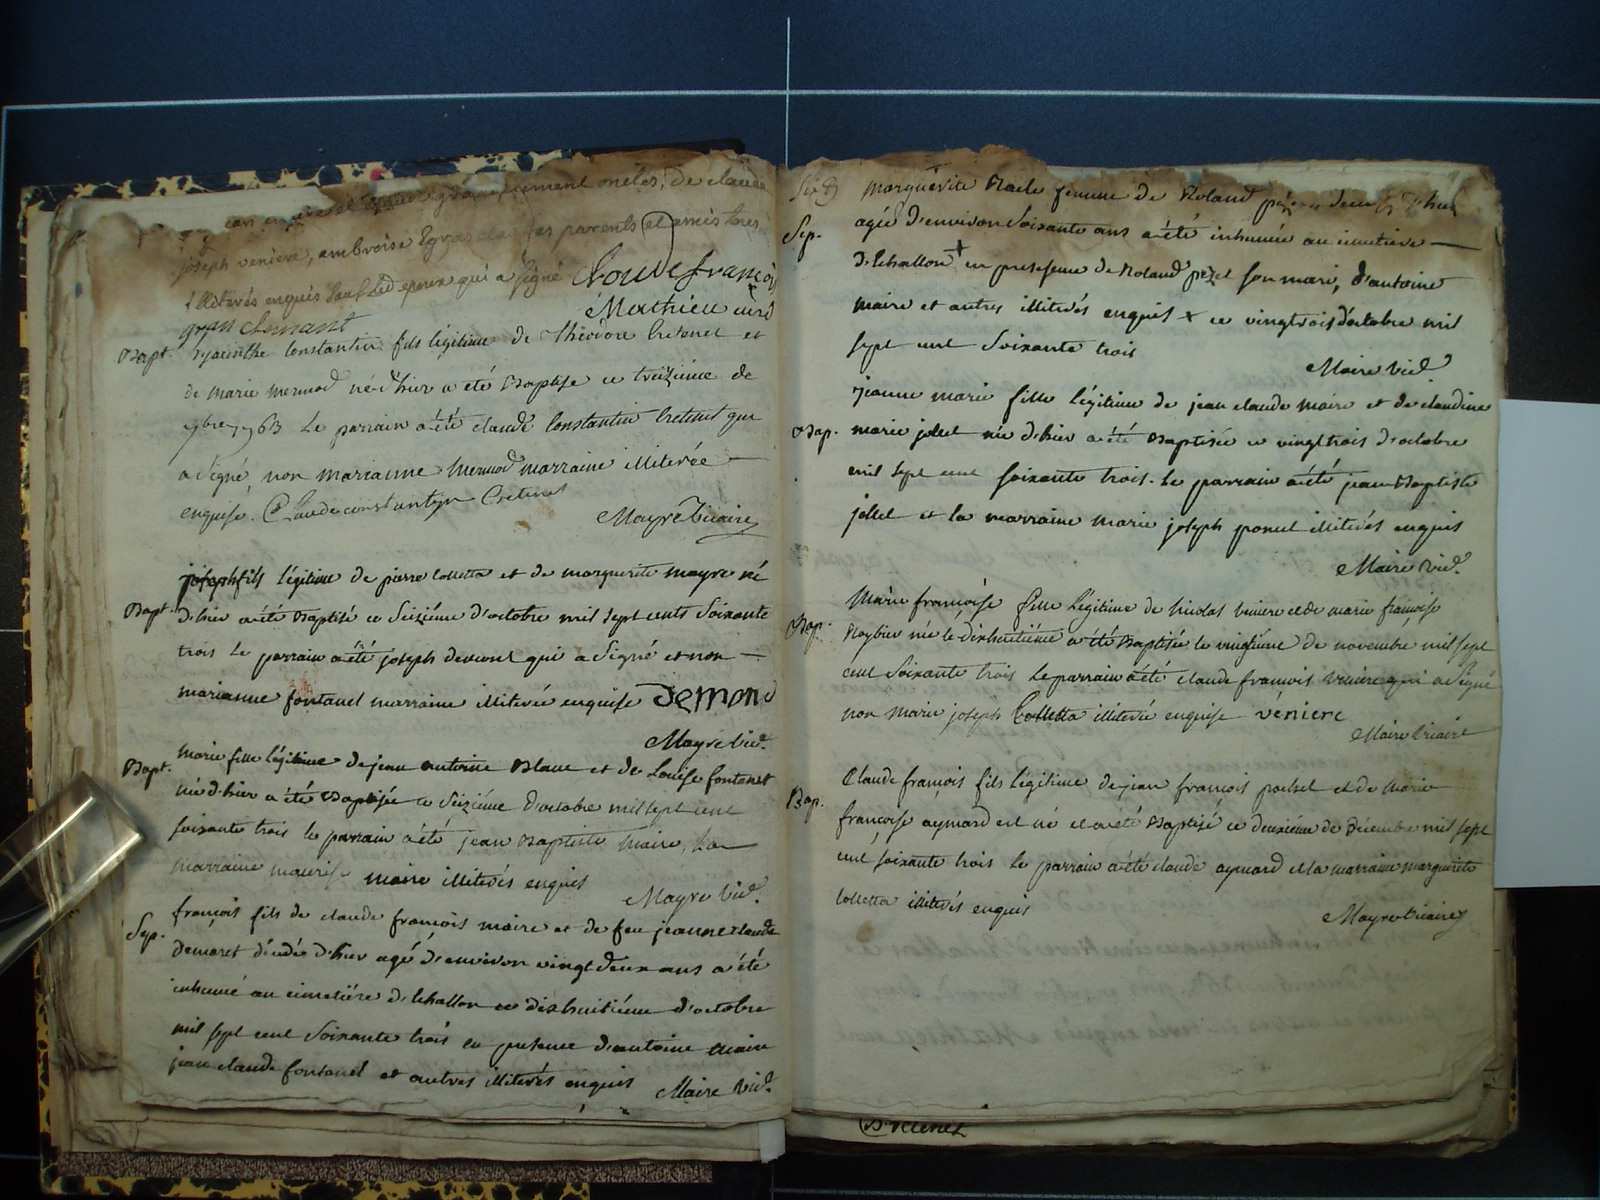 oncles, de claude
joseph veniere, ambroise Egraz parents et amis tous
illiterés enquis sauf led epoux qui a signé Claude françois
gran clement Mathieu curé
Bapt. hyacinthe Constantin fils légitime de Théodore Cretenet et
de marie mermod né d'hier a été Baptise ce treizieme de
9bre 1763 Le parrain a été claude Constantin Cretenet qui
a signé, non marianne mermod marraine illiterée
enquise. Claude constantin Cretenet
Mayre Vicaire
joseph fils légitime de pierre Colletta et de marguerite mayre né
Bapt. d'hier a été Baptisé ce Seiziéme d'octobre mil sept cents Soixante
trois Le parrain a été joseph demont qui a Signé et non
marianne fontanel marraine illiterée enquise demond
Mayre Vic.
Bapt. marie fille légitime de jean antoine Blanc et de Louise fontanet
née d'hier a été Baptisée ce Seiziéme d'octobre mil sept cent
soixante trois le parrain a été jean Baptiste Maire, la
marraine maurise maire illiterés enquis
Mayre Vic.
françois fils de claude françois maire et de feu jeanne claude
Sep. demaret décédé d'hier agé d'environ vingt deux ans a été
inhumé au cimetiére d'Echallon ce dixhuitiéme d'octobre
mil sept cent Soixante trois en presence d'antoine maire
jean claude fontanel et autres illiterés enquis Maire Vic.
Marguerite femme de Roland d'hier
Sep. agée d'environ Soixante ans a été inhumée au cimetiere
d'Echallon en presence de Roland son mari, d'antoine
maire et autres illiterés enquis ce vingtrois d'octobre mil
sept cent Soixante trois
Maire Vic.
jeanne marie fille légitime de jean claude maire et de claudine
Bap. marie joliet née d'hier a été Baptisée ce vingtrois d'octobre
mil sept cent soixante trois. Le parrain a été jean Baptiste
joliet et la marraine marie joseph poncet illiterés enquis
Maire Vic.
Marie françoise fille légitime de Nicolas veniere et de marie françoise
Bap. née le dixhuitiéme a été Baptisée le vingtiéme de novembre mil sept
cent Soixante trois Le parrain a été claude françois veniere qui a Signé
non marie joseph Colletta illiterée enquise véniere
Maire Vicaire
Claude françois fils légitime de jean françois poncet et de Marie
Bap. françoise aymard est né et a été Baptisé ce deuxiéme de Décembre mil sept
cent soixante trois Le parrain a été claude aymard et la marraine marguerite
Colletta illiterés enquis
Mayre Vicaire